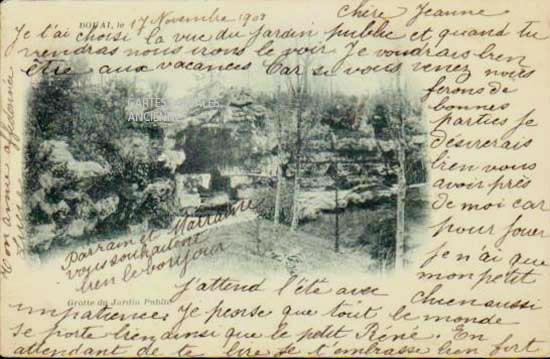 DOUAI, le 17 Novembre 190
Chère Jeanne
Je t'ai choisi la vue du Jardin public et quand tu
viendras nous irons le voir Je voudrais bien
être aux vacances Car si vous venez nous
ferons de
bonnes
parties Je
désirerais
bien vous
avoir près
de moi car
pour jouer
je n'ai que
mon petit
chien aussi
j'attend l'été avec
impatience. Je pense que tout le monde
se porte bien ainsi que le petit Réné. En
attendant de te lire je t'embrasse bien fort
Ton amie affectionnée
Lucie
Parrain et Marraine
vous souhaitent
bien le bonjour
Grotte du Jardin Public
CARTES POSTALES
ANCIENNES